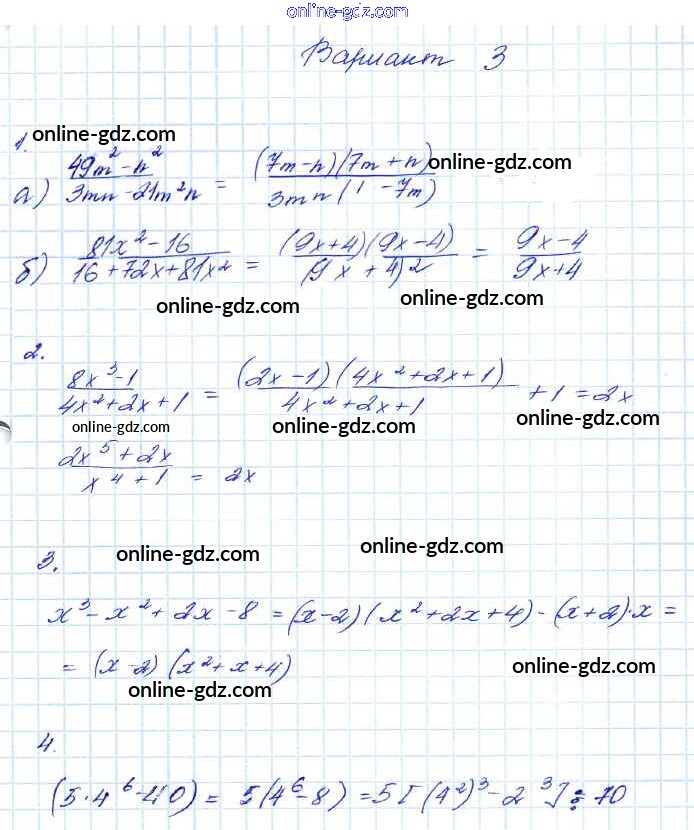 online-gdz.com
Вариант 3
1. online-gdz.com
а) (49m² - n²)/(3mn - 21m²n) = ((7m - n)(7m + n))/(3mn(1 - 7m)) online-gdz.com
б) (81x² - 16)/(16 + 72x + 81x²) = ((9x + 4)(9x - 4))/((9x + 4)²) = (9x - 4)/(9x + 4)
online-gdz.com online-gdz.com
2.
(8x³ - 1)/(4x² + 2x + 1) = ((2x - 1)(4x² + 2x + 1))/(4x² + 2x + 1) + 1 = 2x
online-gdz.com online-gdz.com online-gdz.com
(2x⁵ + 2x)/(x⁴ + 1) = 2x
3. online-gdz.com online-gdz.com
x³ - x² + 2x - 8 = (x - 2)(x² + 2x + 4) - (x + 2)·x =
= (x - 2)(x² + x + 4) online-gdz.com
online-gdz.com
4.
(5·4⁶ - 40) = 5(4⁶ - 8) = 5[(4²)³ - 2³] ⋮ 70